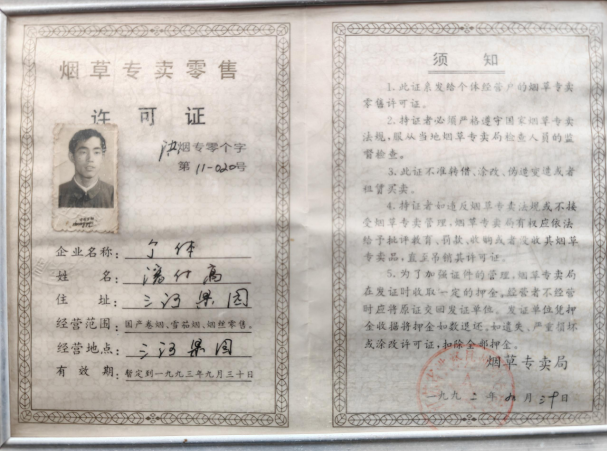 烟草专卖零售
许可证
烟专零个字
第11-020号
企业名称：个体
姓名：
住址：三河果园
经营范围：国产卷烟、雪茄烟、烟丝零售。
经营地点：三河果园
有效期：暂定到一九九三年九月三十日
须知
1.此证系发给个体经营户的烟草专卖
零售许可证。
2.持证者必须严格遵守国家烟草专卖
法规，服从当地烟草专卖局检查人员的监
督检查。
3.此证不准转借、涂改、伪造变造或者
租赁买卖。
4.持证者如违反烟草专卖法规或不接
受烟草专卖管理，烟草专卖局有权应依法
给予批评教育、罚款、收购或者没收其烟草
专卖品，直至吊销其许可证。
5.为了加强证件的管理，烟草专卖局
在发证时收取一定的押金，经营者不经营
时应将原证交回发证单位。发证单位凭押
金收据将押金如数退还，如遗失、严重损坏
或涂改许可证，扣除全部押金。
烟草专卖局
一九九二年 月三十日